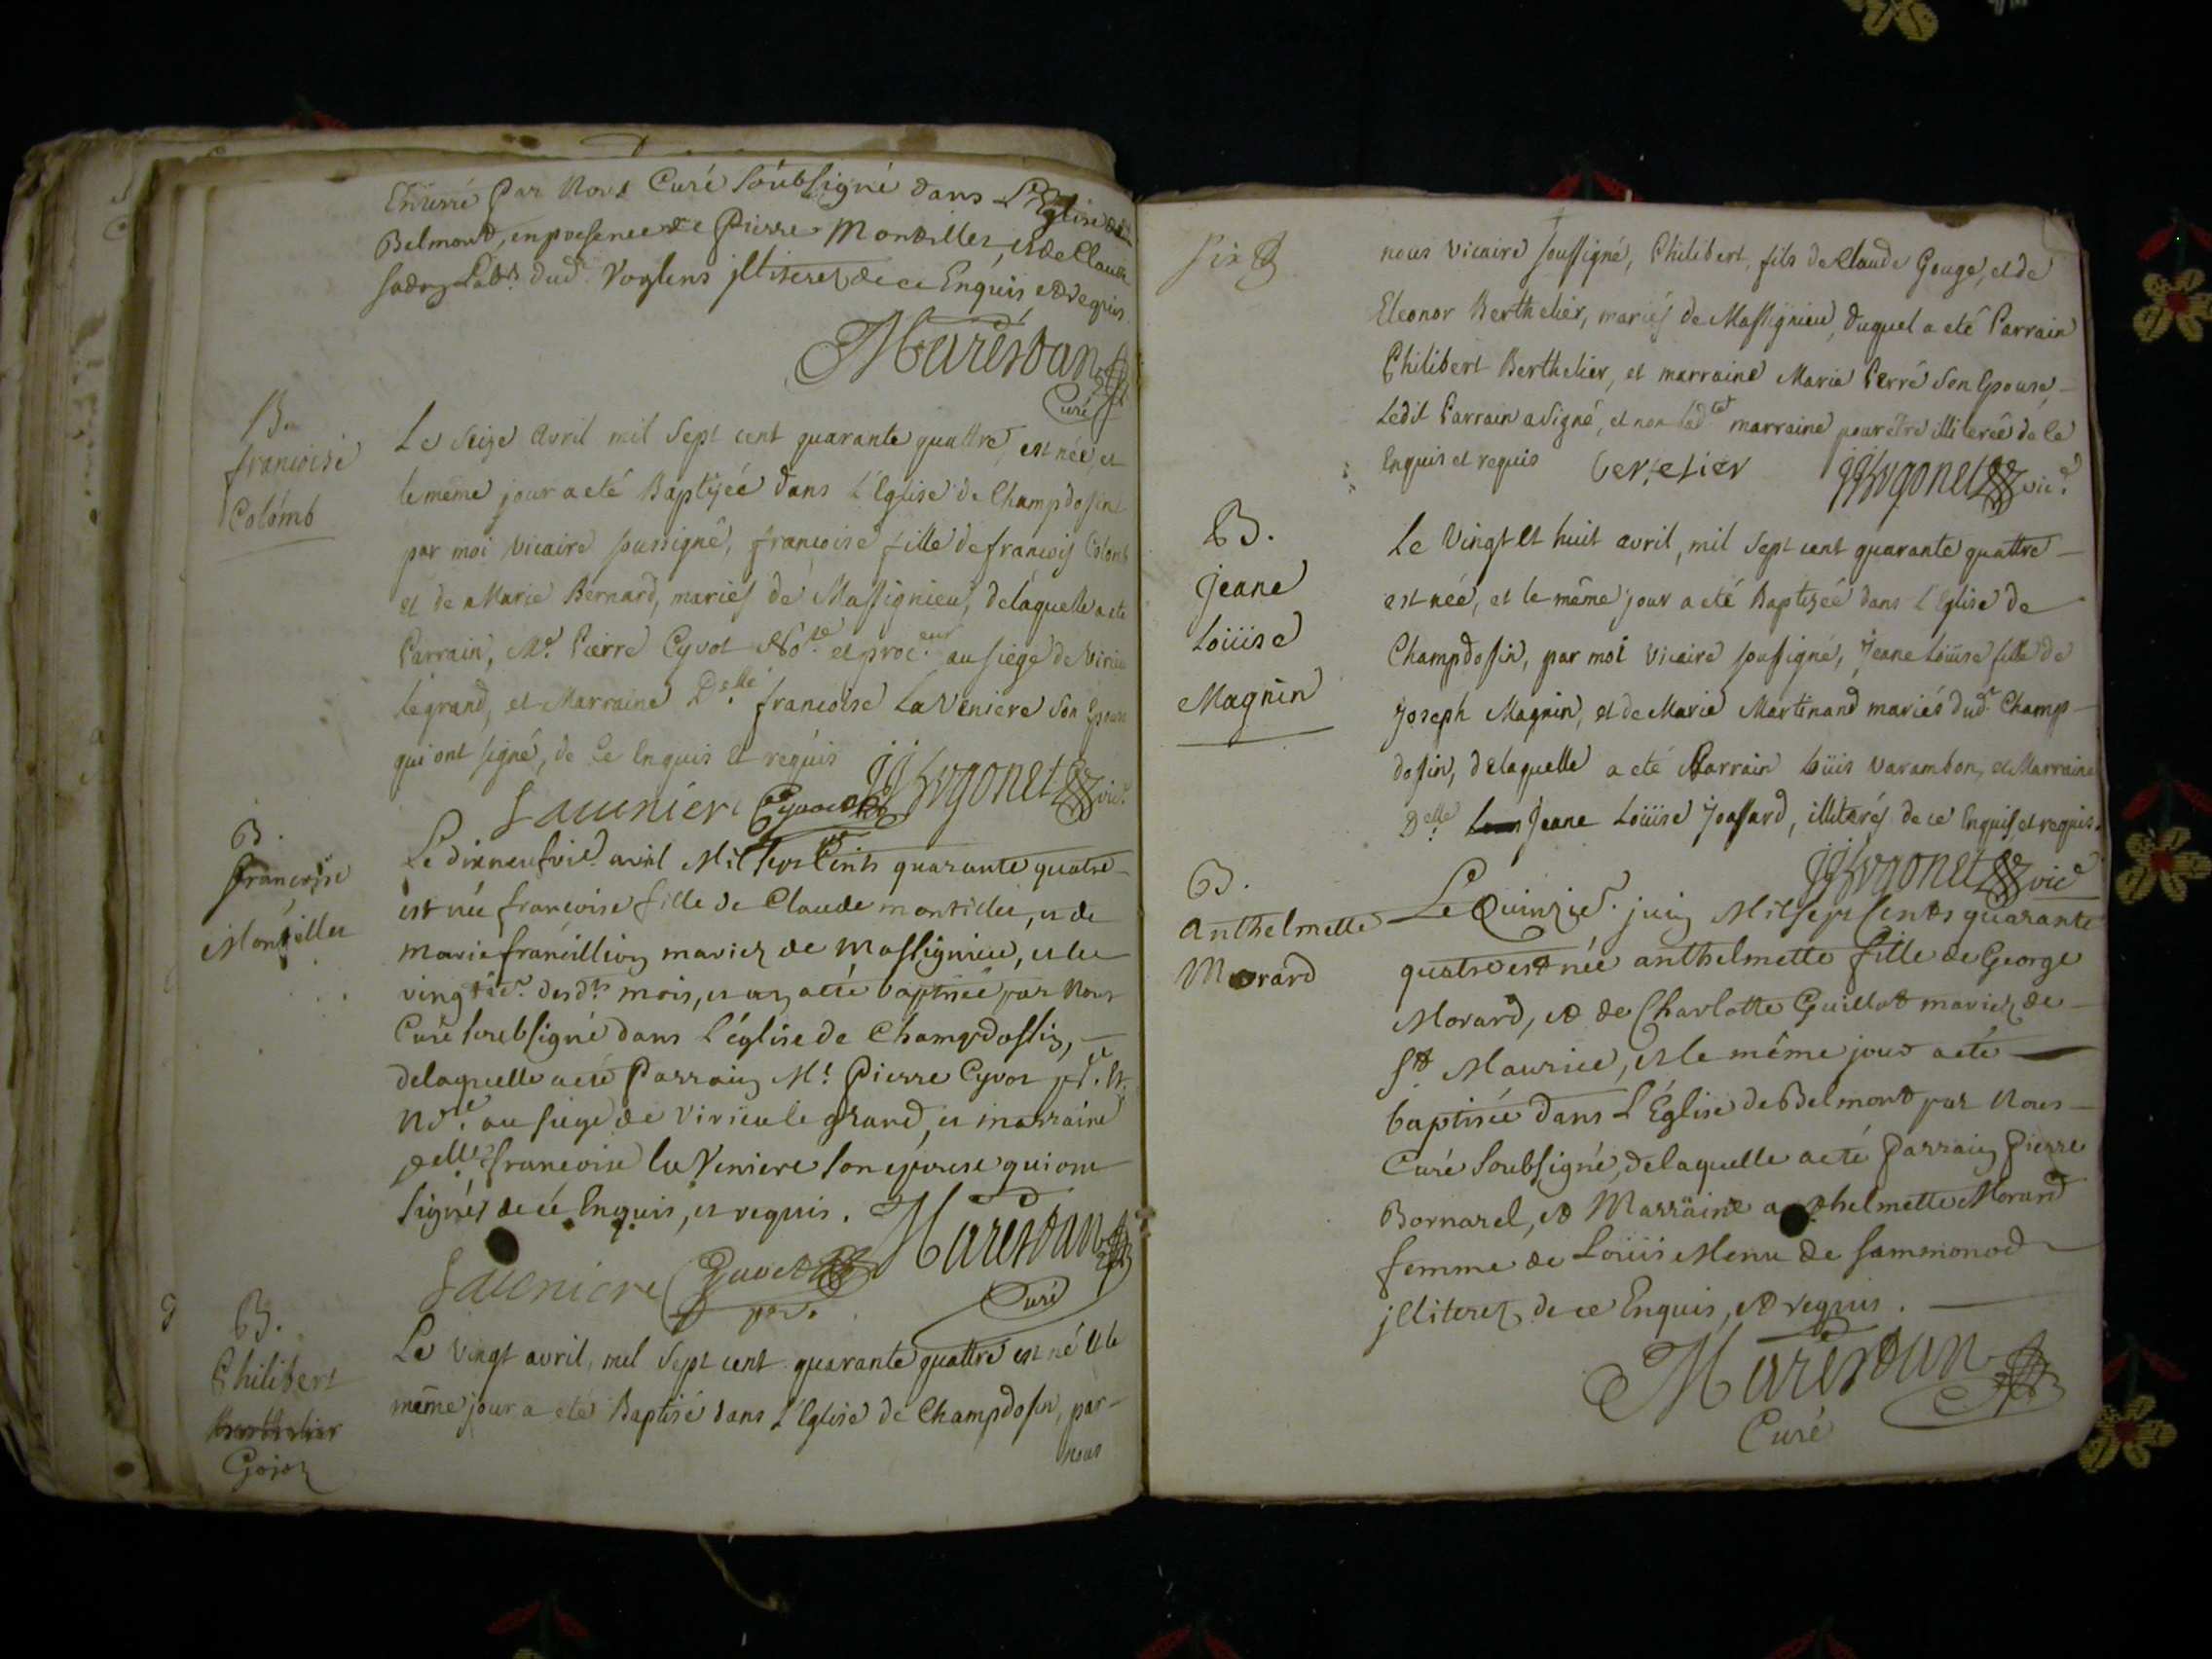 Enterré Par Nous Curé Soubsigné dans L'Eglise de
Belmond, en presence de Pierre Montillet, et de Claude
dud. Voglens jlliterez de ce Enquis et requis.
Marestan
Curé
B.
françoise
Colomb
Le Seize avril mil Sept cent quarante quattre, est née, et
le même jour a eté Baptiséé dans L'Eglise de Champdosin
par moi vicaire soussigné, françoise fille de françois Colomb
et de Marie Bernard, mariés de Massignieu, delaquelle a eté
Parrain, Mr. Pierre Cyvot No.re et proc.eur au siege de Virieu
legrand, et Marraine D.elle françoise La Veniere Son Epouse
qui ont signé, de Ce Enquis et requis
jjhugonet vic.e
Launiere Cyvoct
B.
françoise
Montillet
Le dixneufvie. avril Mil Sept Cents quarante quatre
est née françoise fille de Claude montillet, et de
marie francillion mariez de Massignieu, et le
vingtie. desdts mois, et an a été baptisée par Nous
Curé soubsigné dans L'église de Champdossin,
delaquelle a eté Parrain Mr. Pierre Cyvot pr. Et.
No.re au siege de Virieu le grand, et marraine
delle. françoise la Veniere son épouse qui ont
signéz de cé Enquis, et requis. Marestan
Launiere Cyvoct
Curé
B.
Philibert
Berthelier
Gojoz
Le vingt avril, mil Sept cent quarante quattre est né et le
même jour a eté Baptisé dans L'Eglise de Champdosin, par
nous
six
nous vicaire soussigné, Philibert, fils de Claude Gouge, et de
Eleonor Berthelier, mariés de Massignieu, duquel a eté Parrain
Philibert Berthelier, et marraine Marie Perré Son Epouse,
Ledit Parrain a signé, et non lad.te marraine pour être illiterée de Ce
Enquis et requis bertelier jjhugonet vic.e
B.
Jeane
Loüise
Magnin
Le Vingt et huit avril, mil sept cent quarante quattre
est néé, et le même jour a eté Baptiséé dans L'Eglise de
Champdosin, par moi vicaire soussigné, Jeane Loüise fille de
Joseph Magnin, et de Marie Martinand mariés dud. Champ-
dosin, delaquelle a eté Parrain Loüis Varambon, et Marraine
D.elle Jeane Loüise Joassard, illiterés de ce Enquis, et requis.
jjhugonet vic.e
B.
Anthelmette
Morard
Le Quinzie. juin Mil sept Cents quarante
quatre est née anthelmette fille de George
Morard, et de Charlotte Guillot mariez de
St. Maurice, et le même jour a eté
baptisée dans L'Église de Belmont par Nous
Curé Soubsigné, delaquelle a eté Parrain Pierre
Bornarel, et Marraine anthelmette Morard
femme de Loüis Menu de Sammonod
jlliterez de ce Enquis, et requis.
Marestan
Curé